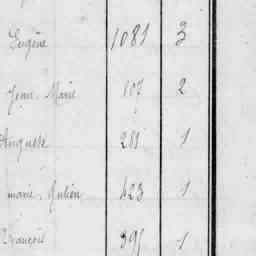 Eugène 1081 3
Jean Marie 107 2
Auguste 281 1
marie Julien 423 1
François 395 1